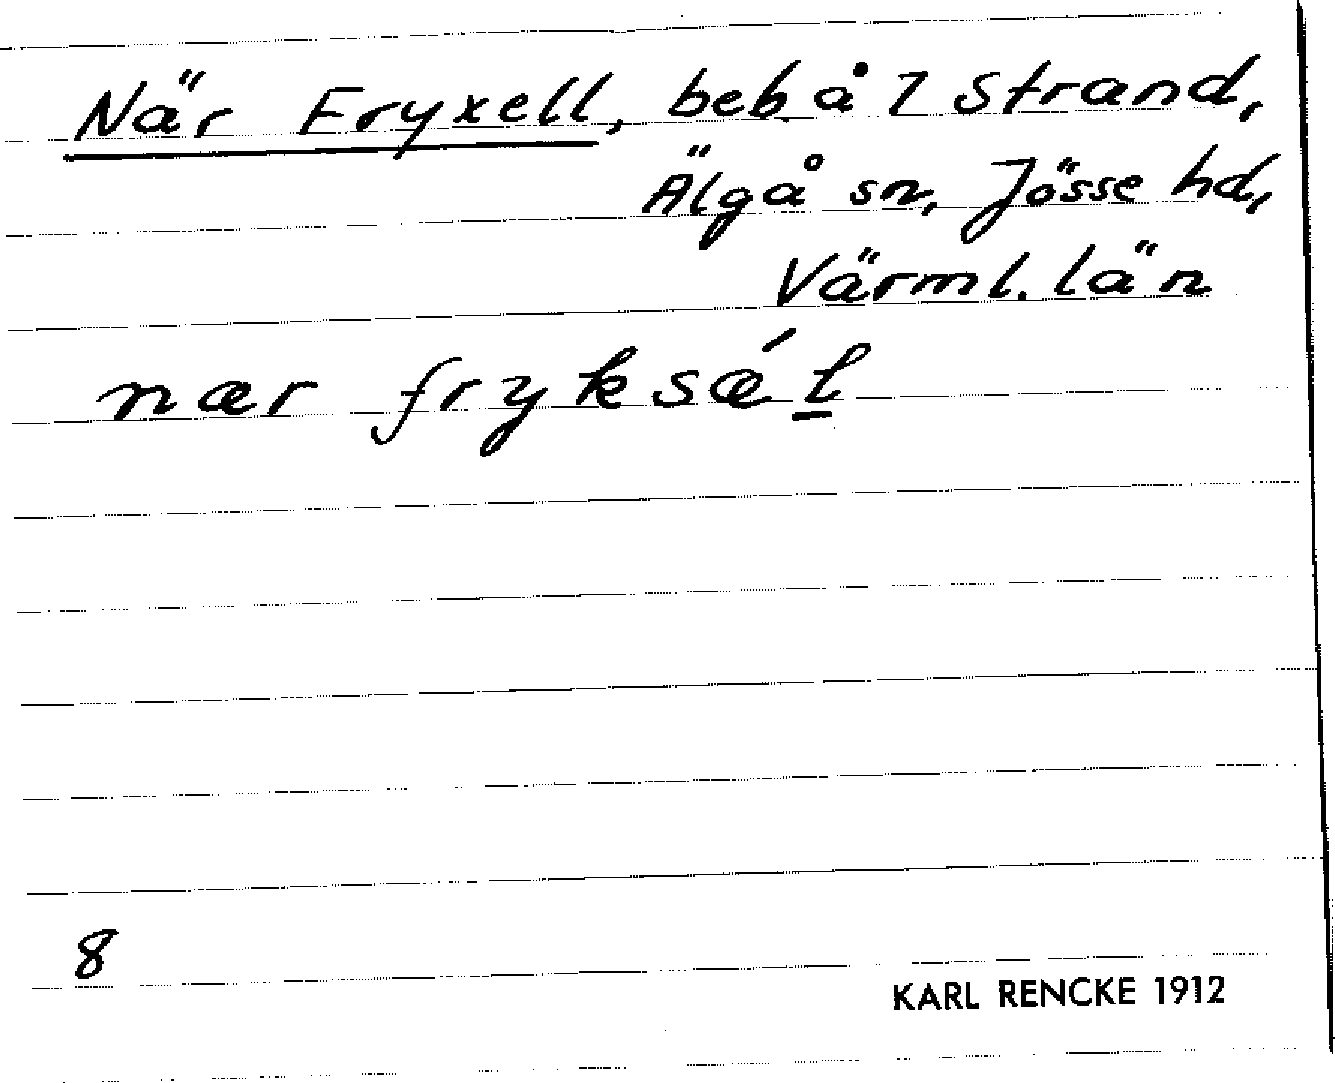 När Fryxell, beb å 7 Strand,
Älgå sn, Jösse hd,
Värml. län
nær fryksǽl̲
8
KARL RENCKE 1912